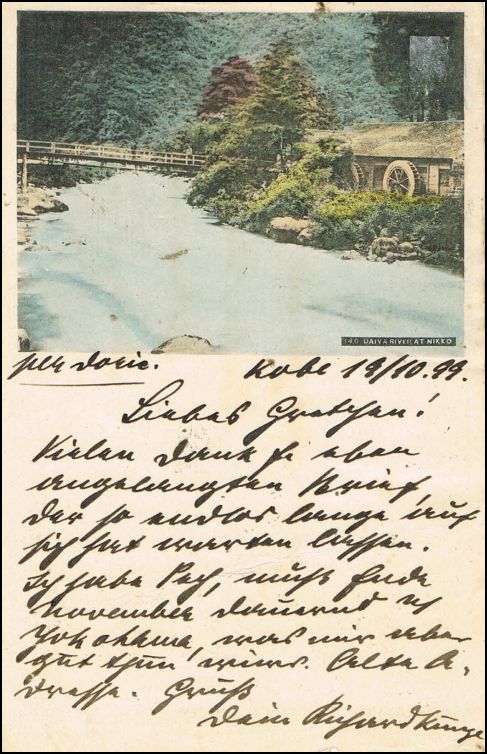 340 DAIYA RIVER, AT NIKKO
per Doric.
Kobe 19/10.99.
Liebes Gretchen!
Vielen Dank f. eben
angelangten Brief,
der so endlos lange auf
sich hat warten lassen.
Ich habe Pech, muß Ende
November dauernd n/
Yokohama, was mir aber
gut thun wird. Alte A-
dresse. Gruß
Dein Richard